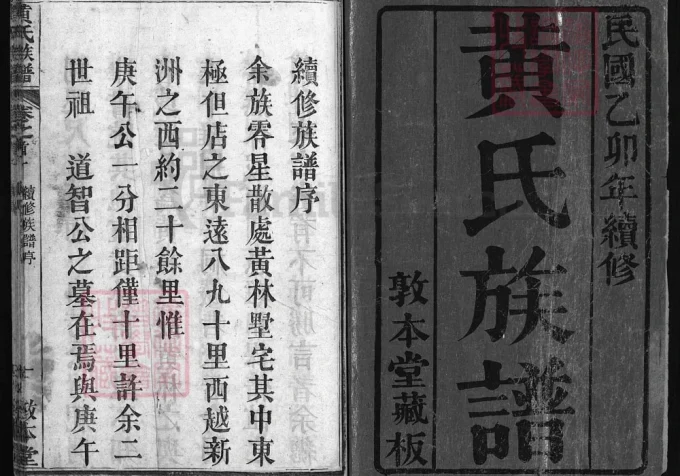 民國乙卯年續修
黃氏族譜
敦本堂藏板
續修族譜序
余族零星散處黃林墅宅其中東
極但店之東遠八九十里西越新
洲之西約二十餘里惟
庚午公一分相距僅十里許余二
世祖 道智公之墓在焉與庚午
黃氏族譜
卷之首
續修族譜序
敦本堂